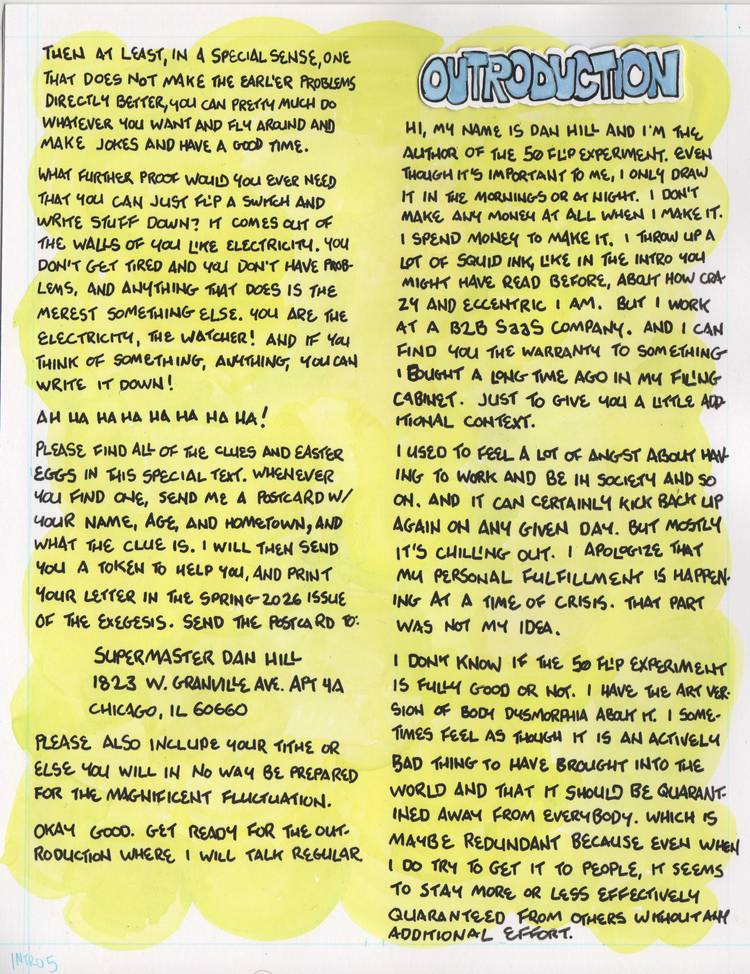 THEN AT LEAST, IN A SPECIAL SENSE, ONE
THAT DOES NOT MAKE THE EARLIER PROBLEMS
DIRECTLY BETTER, YOU CAN PRETTY MUCH DO
WHATEVER YOU WANT AND FLY AROUND AND
MAKE JOKES AND HAVE A GOOD TIME.
WHAT FURTHER PROOF WOULD YOU EVER NEED
THAT YOU CAN JUST FLIP A SWITCH AND
WRITE STUFF DOWN? IT COMES OUT OF
THE WALLS OF YOU LIKE ELECTRICITY. YOU
DON'T GET TIRED AND YOU DON'T HAVE PROB-
LEMS, AND ANYTHING THAT DOES IS THE
MEREST SOMETHING ELSE. YOU ARE THE
ELECTRICITY, THE WATCHER! AND IF YOU
THINK OF SOMETHING, ANYTHING, YOU CAN
WRITE IT DOWN!
AH HA HA HA HA HA HA HA!
PLEASE FIND ALL OF THE CLUES AND EASTER
EGGS IN THIS SPECIAL TEXT. WHENEVER
YOU FIND ONE, SEND ME A POSTCARD W/
YOUR NAME, AGE, AND HOMETOWN, AND
WHAT THE CLUE IS. I WILL THEN SEND
YOU A TOKEN TO HELP YOU, AND PRINT
YOUR LETTER IN THE SPRING 2026 ISSUE
OF THE EXEGESIS. SEND THE POSTCARD TO:
SUPERMASTER DAN HILL
1823 W. GRANVILLE AVE. APT 4A
CHICAGO, IL 60660
PLEASE ALSO INCLUDE YOUR TITHE OR
ELSE YOU WILL IN NO WAY BE PREPARED
FOR THE MAGNIFICENT FLUCTUATION.
OKAY GOOD. GET READY FOR THE OUT-
RODUCTION WHERE I WILL TALK REGULAR.
OUTRODUCTION
HI, MY NAME IS DAN HILL AND I'M THE
AUTHOR OF THE 50 FLIP EXPERIMENT. EVEN
THOUGH IT'S IMPORTANT TO ME, I ONLY DRAW
IT IN THE MORNINGS OR AT NIGHT. I DON'T
MAKE ANY MONEY AT ALL WHEN I MAKE IT.
I SPEND MONEY TO MAKE IT. I THROW UP A
LOT OF SQUID INK, LIKE IN THE INTRO YOU
MIGHT HAVE READ BEFORE, ABOUT HOW CRA-
ZY AND ECCENTRIC I AM. BUT I WORK
AT A B2B SaaS COMPANY. AND I CAN
FIND YOU THE WARRANTY TO SOMETHING
I BOUGHT A LONG TIME AGO IN MY FILING
CABINET. JUST TO GIVE YOU A LITTLE ADD-
ITIONAL CONTEXT.
I USED TO FEEL A LOT OF ANGST ABOUT HAV-
ING TO WORK AND BE IN SOCIETY AND SO
ON. AND IT CAN CERTAINLY KICK BACK UP
AGAIN ON ANY GIVEN DAY. BUT MOSTLY
IT'S CHILLING OUT. I APOLOGIZE THAT
MY PERSONAL FULFILLMENT IS HAPPEN-
ING AT A TIME OF CRISIS. THAT PART
WAS NOT MY IDEA.
I DON'T KNOW IF THE 50 FLIP EXPERIMENT
IS FULLY GOOD OR NOT. I HAVE THE ART VER-
SION OF BODY DYSMORPHIA ABOUT IT. I SOME-
TIMES FEEL AS THOUGH IT IS AN ACTIVELY
BAD THING TO HAVE BROUGHT INTO THE
WORLD AND THAT IT SHOULD BE QUARANT-
INED AWAY FROM EVERYBODY. WHICH IS
MAYBE REDUNDANT BECAUSE EVEN WHEN
I DO TRY TO GET IT TO PEOPLE, IT SEEMS
TO STAY MORE OR LESS EFFECTIVELY
QUARANTEED FROM OTHERS WITHOUT ANY
ADDITIONAL EFFORT.
INTRO 5